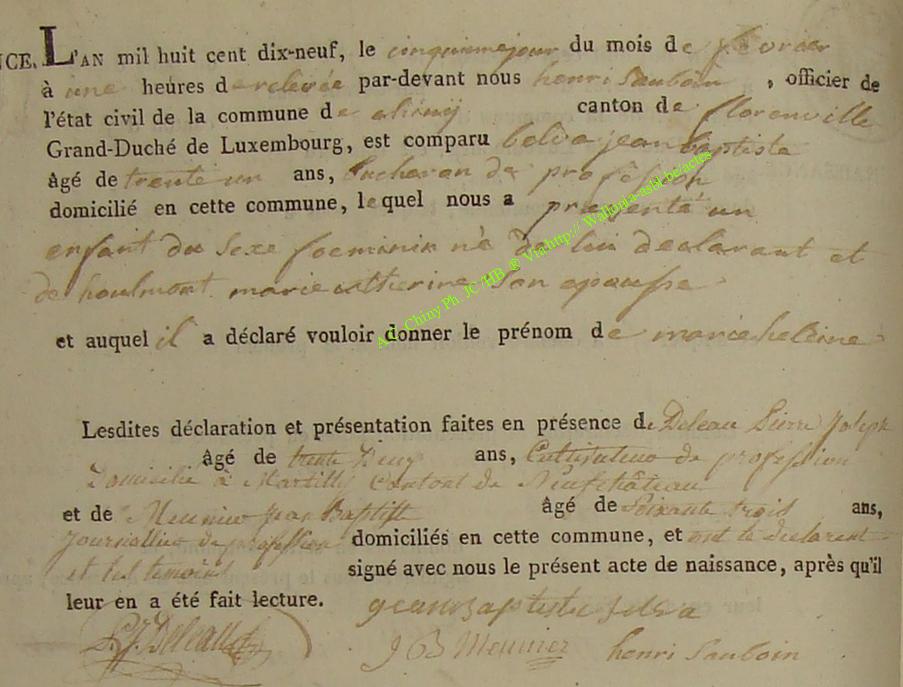 NCE. L'AN mil huit cent dix-neuf, le cinquieme jour du mois de fevrier
à une heures de relevée par-devant nous henri Sauboin , officier de
l'état civil de la commune de chinij canton de florenville
Grand-Duché de Luxembourg, est comparu belva jean baptiste
âgé de trente un ans, bucheron de profession
domicilié en cette commune, lequel nous a présenté un
enfant du Sexe foeminin né de lui declarant et
de houlmont marie catherine Son epousse
et auquel il a déclaré vouloir donner le prénom de marie heleine
Lesdites déclaration et présentation faites en présence de Deleau Pierre Joseph
âgé de trente Deux ans, Cultivateur de profession
Domicilié à Martilli Canton de Neufchâteau
et de Meunier Jean Baptiste âgé de Soixante trois ans,
Journallier de profession domiciliés en cette commune, et ont le declarent
et les temoins signé avec nous le présent acte de naissance, après qu'il
leur en a été fait lecture. jean Baptiste belva
P. J. Deleau J B Meunier henri Sauboin
A.C. Chiny Ph. JC HB @ Via http://Wallonia-asbl-be/actes